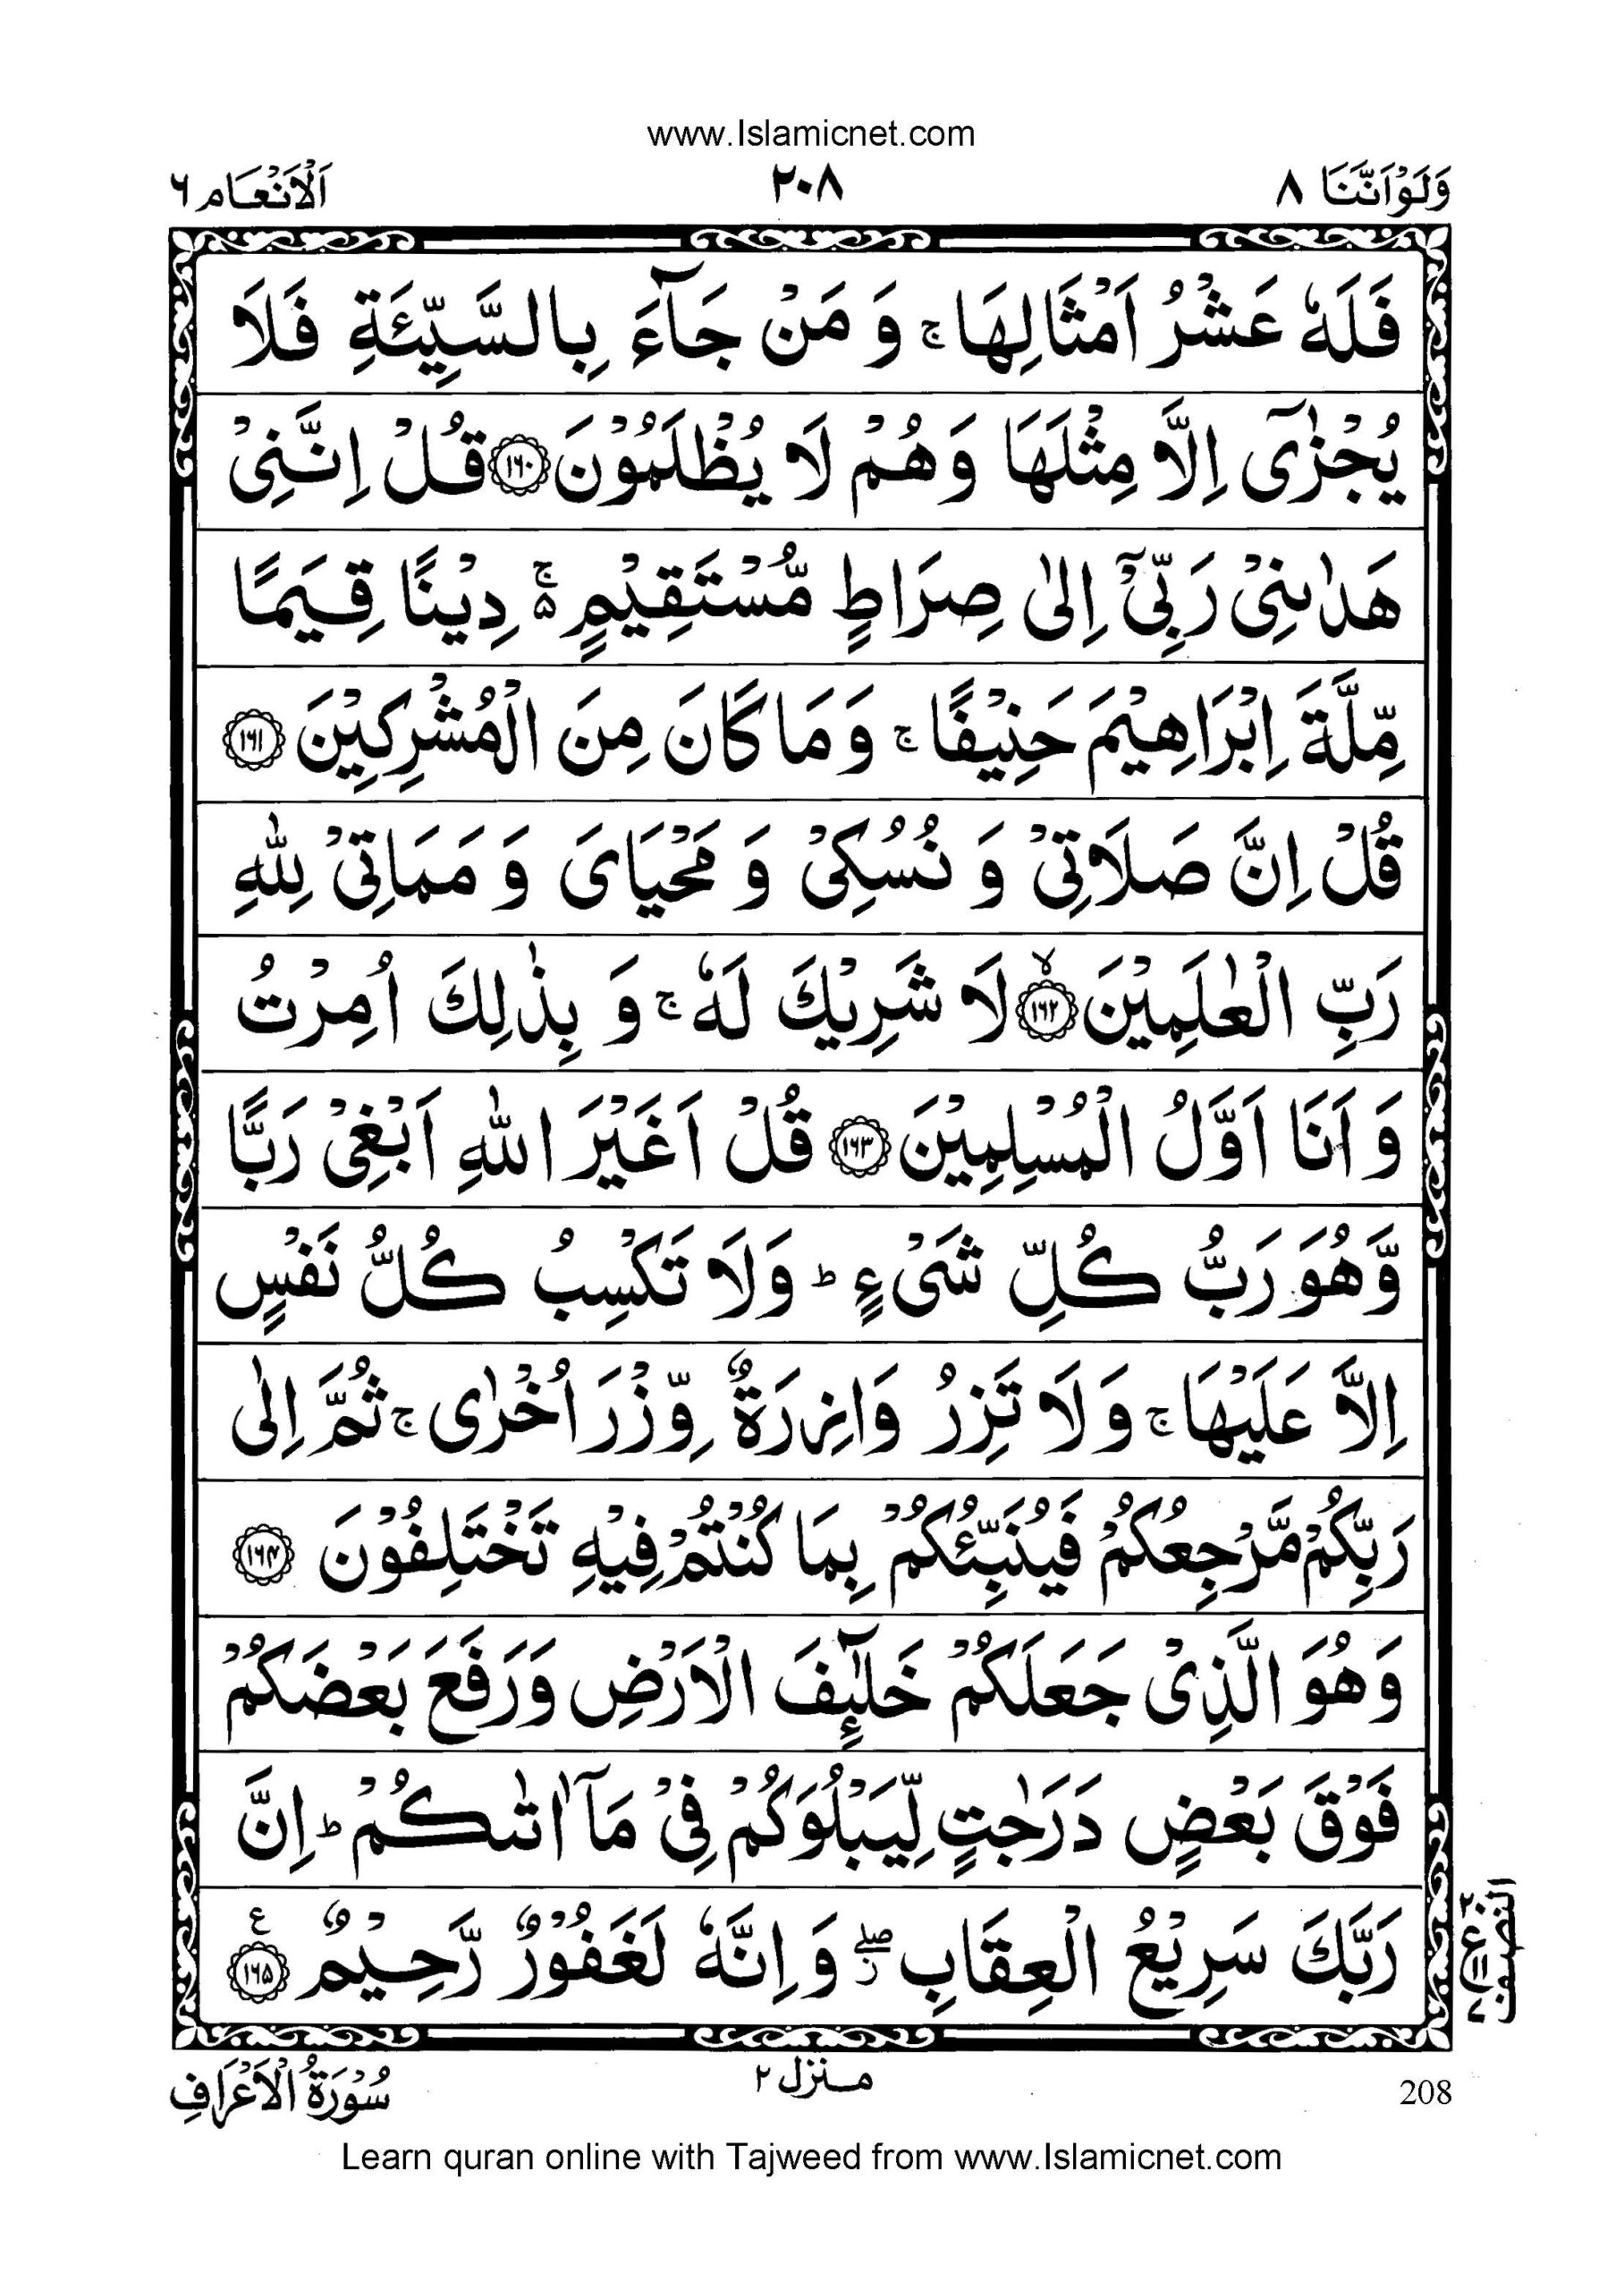 www.Islamicnet.com
وَلَوْاَنَّنَا ٨
٢٠٨
اَلْاَنْعَام ٦
فَلَهٗ عَشْرُ اَمْثَالِهَا ۚ وَ مَنْ جَآءَ بِالسَّيِّئَةِ فَلَا
يُجْزٰٓى اِلَّا مِثْلَهَا وَهُمْ لَا يُظْلَمُوْنَ ﴿١٦٠﴾ قُلْ اِنَّنِيْ
هَدٰىنِيْ رَبِّيْٓ اِلٰى صِرَاطٍ مُّسْتَقِيْمٍ ۚ۬ دِيْنًا قِيَمًا
مِّلَّةَ اِبْرَاهِيْمَ حَنِيْفًا ۚ وَمَا كَانَ مِنَ الْمُشْرِكِيْنَ ﴿١٦١﴾
قُلْ اِنَّ صَلَاتِيْ وَ نُسُكِيْ وَ مَحْيَايَ وَ مَمَاتِيْ لِلّٰهِ
رَبِّ الْعٰلَمِيْنَ ﴿١٦٢﴾ۙ لَا شَرِيْكَ لَهٗ ۚ وَ بِذٰلِكَ اُمِرْتُ
وَ اَنَا اَوَّلُ الْمُسْلِمِيْنَ ﴿١٦٣﴾ قُلْ اَغَيْرَ اللّٰهِ اَبْغِيْ رَبًّا
وَّهُوَ رَبُّ كُلِّ شَيْءٍ ؕ وَلَا تَكْسِبُ كُلُّ نَفْسٍ
اِلَّا عَلَيْهَا ۚ وَلَا تَزِرُ وَازِرَةٌ وِّزْرَ اُخْرٰى ۚ ثُمَّ اِلٰى
رَبِّكُمْ مَّرْجِعُكُمْ فَيُنَبِّئُكُمْ بِمَا كُنْتُمْ فِيْهِ تَخْتَلِفُوْنَ ﴿١٦٤﴾
وَهُوَ الَّذِيْ جَعَلَكُمْ خَلٰٓئِفَ الْاَرْضِ وَرَفَعَ بَعْضَكُمْ
فَوْقَ بَعْضٍ دَرَجٰتٍ لِّيَبْلُوَكُمْ فِيْ مَآ اٰتٰىكُمْ ؕ اِنَّ
رَبَّكَ سَرِيْعُ الْعِقَابِ ۖ٘ وَ اِنَّهٗ لَغَفُوْرٌ رَّحِيْمٌ ﴿١٦٥﴾ ع
النصف
منزل ٢
سُوْرَةُ الْاَعْرَافِ
208
Learn quran online with Tajweed from www.Islamicnet.com